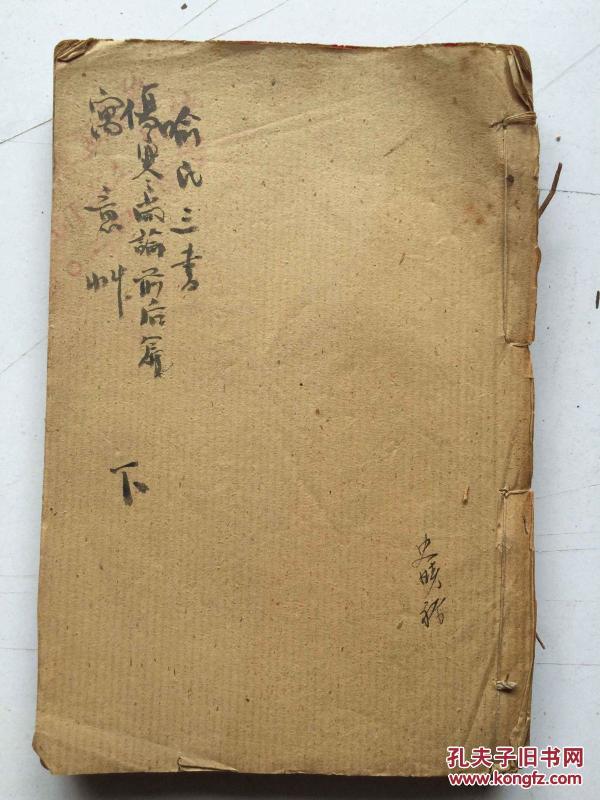 喻氏三書
傷寒尚論前后篇
寓意艸
下
史
孔夫子旧书网
www.kongfz.com